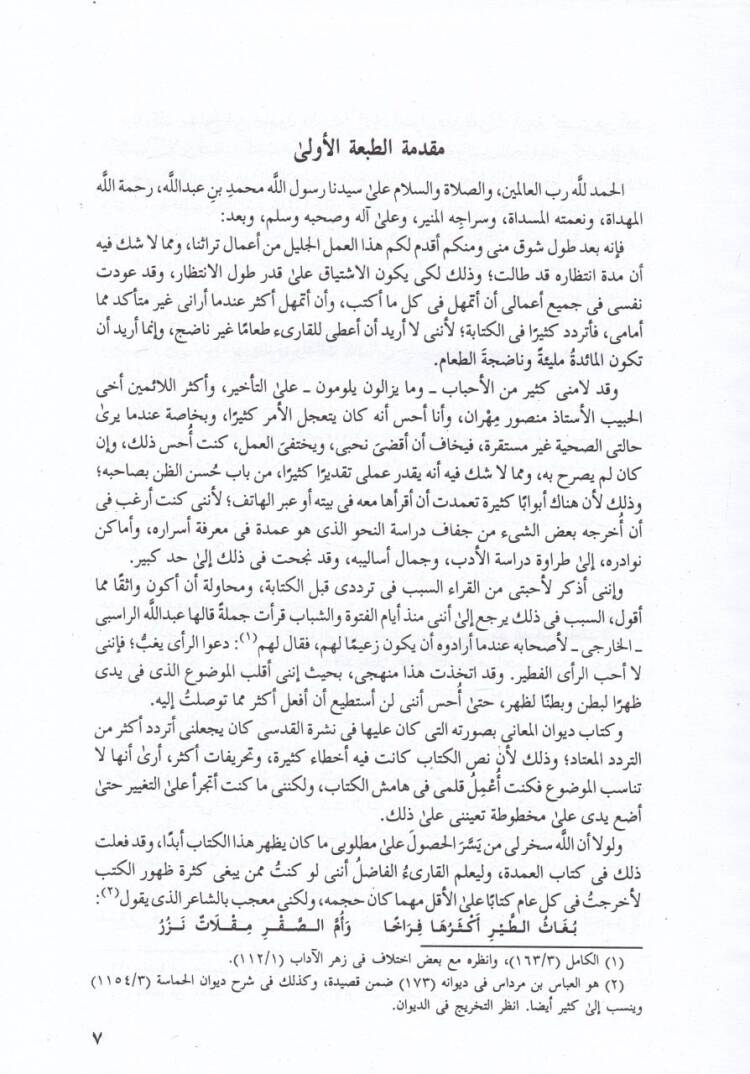 مقدمة الطبعة الأولىٰ
الحمد للَّه رب العالمين، والصلاة والسلام علىٰ سيدنا رسول اللَّه محمدِ بنِ عبداللَّه، رحمة اللَّه
المهداة، ونعمته المسداة، وسراجِه المنير، وعلىٰ آله وصحبه وسلم، وبعد:
فإنه بعد طول شوق منى ومنكم أقدم لكم هذا العمل الجليل من أعمال تراثنا، ومما لا شك فيه
أن مدة انتظاره قد طالت؛ وذلك لكى يكون الاشتياق علىٰ قدر طول الانتظار، وقد عودت
نفسى فى جميع أعمالى أن أتمهل فى كل ما أكتب، وأن أتمهل أكثر عندما أرانى غير متأكد مما
أمامى، فأتردد كثيرًا فى الكتابة؛ لأننى لا أريد أن أعطى للقارىء طعامًا غير ناضج، وإنما أريد أن
تكون المائدةُ مليئةً وناضجةَ الطعام.
وقد لامنى كثير من الأحباب ـ وما يزالون يلومون ـ علىٰ التأخير، وأكثر اللائمين أخى
الحبيب الأستاذ منصور مِهْران، وأنا أحس أنه كان يتعجل الأمر كثيرًا، وبخاصة عندما يرىٰ
حالتى الصحية غير مستقرة، فيخاف أن أقضىَ نحبى، ويختفىَ العمل، كنت أُحس ذلك، وإن
كان لم يصرح به، ومما لا شك فيه أنه يقدر عملى تقديرًا كثيرًا، من باب حُسن الظن بصاحبه؛
وذلك لأن هناك أبوابًا كثيرة تعمدت أن أقرأها معه فى بيته أو عبر الهاتف؛ لأننى كنت أرغب فى
أن أُخرجه بعض الشىء من جفاف دراسة النحو الذى هو عمدة فى معرفة أسراره، وأماكن
نوادره، إلىٰ طراوة دراسة الأدب، وجمال أساليبه، وقد نجحت فى ذلك إلىٰ حد كبير.
وإننى أذكر لأحبتى من القراء السبب فى ترددى قبل الكتابة، ومحاولة أن أكون واثقًا مما
أقول، السبب فى ذلك يرجع إلىٰ أننى منذ أيام الفتوة والشباب قرأت جملةً قالها عبداللَّه الراسبى
ـ الخارجى ـ لأصحابه عندما أرادوه أن يكون زعيمًا لهم، فقال لهم(١): دعوا الرأى يغبُّ؛ فإننى
لا أحب الرأى الفطير. وقد اتخذت هذا منهجى، بحيث إننى أقلب الموضوع الذى فى يدى
ظهرًا لبطن وبطنًا لظهر، حتىٰ أُحس أننى لن أستطيع أن أفعل أكثر مما توصلتُ إليه.
وكتاب ديوان المعانى بصورته التى كان عليها فى نشرة القدسى كان يجعلنى أتردد أكثر من
التردد المعتاد؛ وذلك لأن نص الكتاب كانت فيه أخطاء كثيرة، وتحريفات أكثر، أرىٰ أنها لا
تناسب الموضوع فكنت أُعْمِلُ قلمى فى هامش الكتاب، ولكننى ما كنت أتجرأ علىٰ التغيير حتىٰ
أضع يدى علىٰ مخطوطة تعيننى علىٰ ذلك.
ولولا أن اللَّه سخر لى من يَسَّرَ الحصولَ علىٰ مطلوبى ما كان يظهر هذا الكتاب أبدًا، وقد فعلت
ذلك فى كتاب العمدة، وليعلم القارىءُ الفاضلُ أننى لو كنتُ ممن يبغى كثرة ظهور الكتب
لأخرجتُ فى كل عام كتابًا علىٰ الأقل مهما كان حجمه، ولكنى معجب بالشاعر الذى يقول(٢):
بُغَاثُ الطَّيْرِ أَكْثَرُهَا فِرَاخًا وَأُمُّ الصَّقْرِ مِقْلَاتٌ نَزُرُ
(١) الكامل (١٦٣/٣)، وانظره مع بعض اختلاف فى زهر الآداب (١١٢/١).
(٢) هو العباس بن مرداس فى ديوانه (١٧٣) ضمن قصيدة، وكذلك فى شرح ديوان الحماسة (١١٥٤/٣)
وينسب إلىٰ كثير أيضا. انظر التخريج فى الديوان.
٧